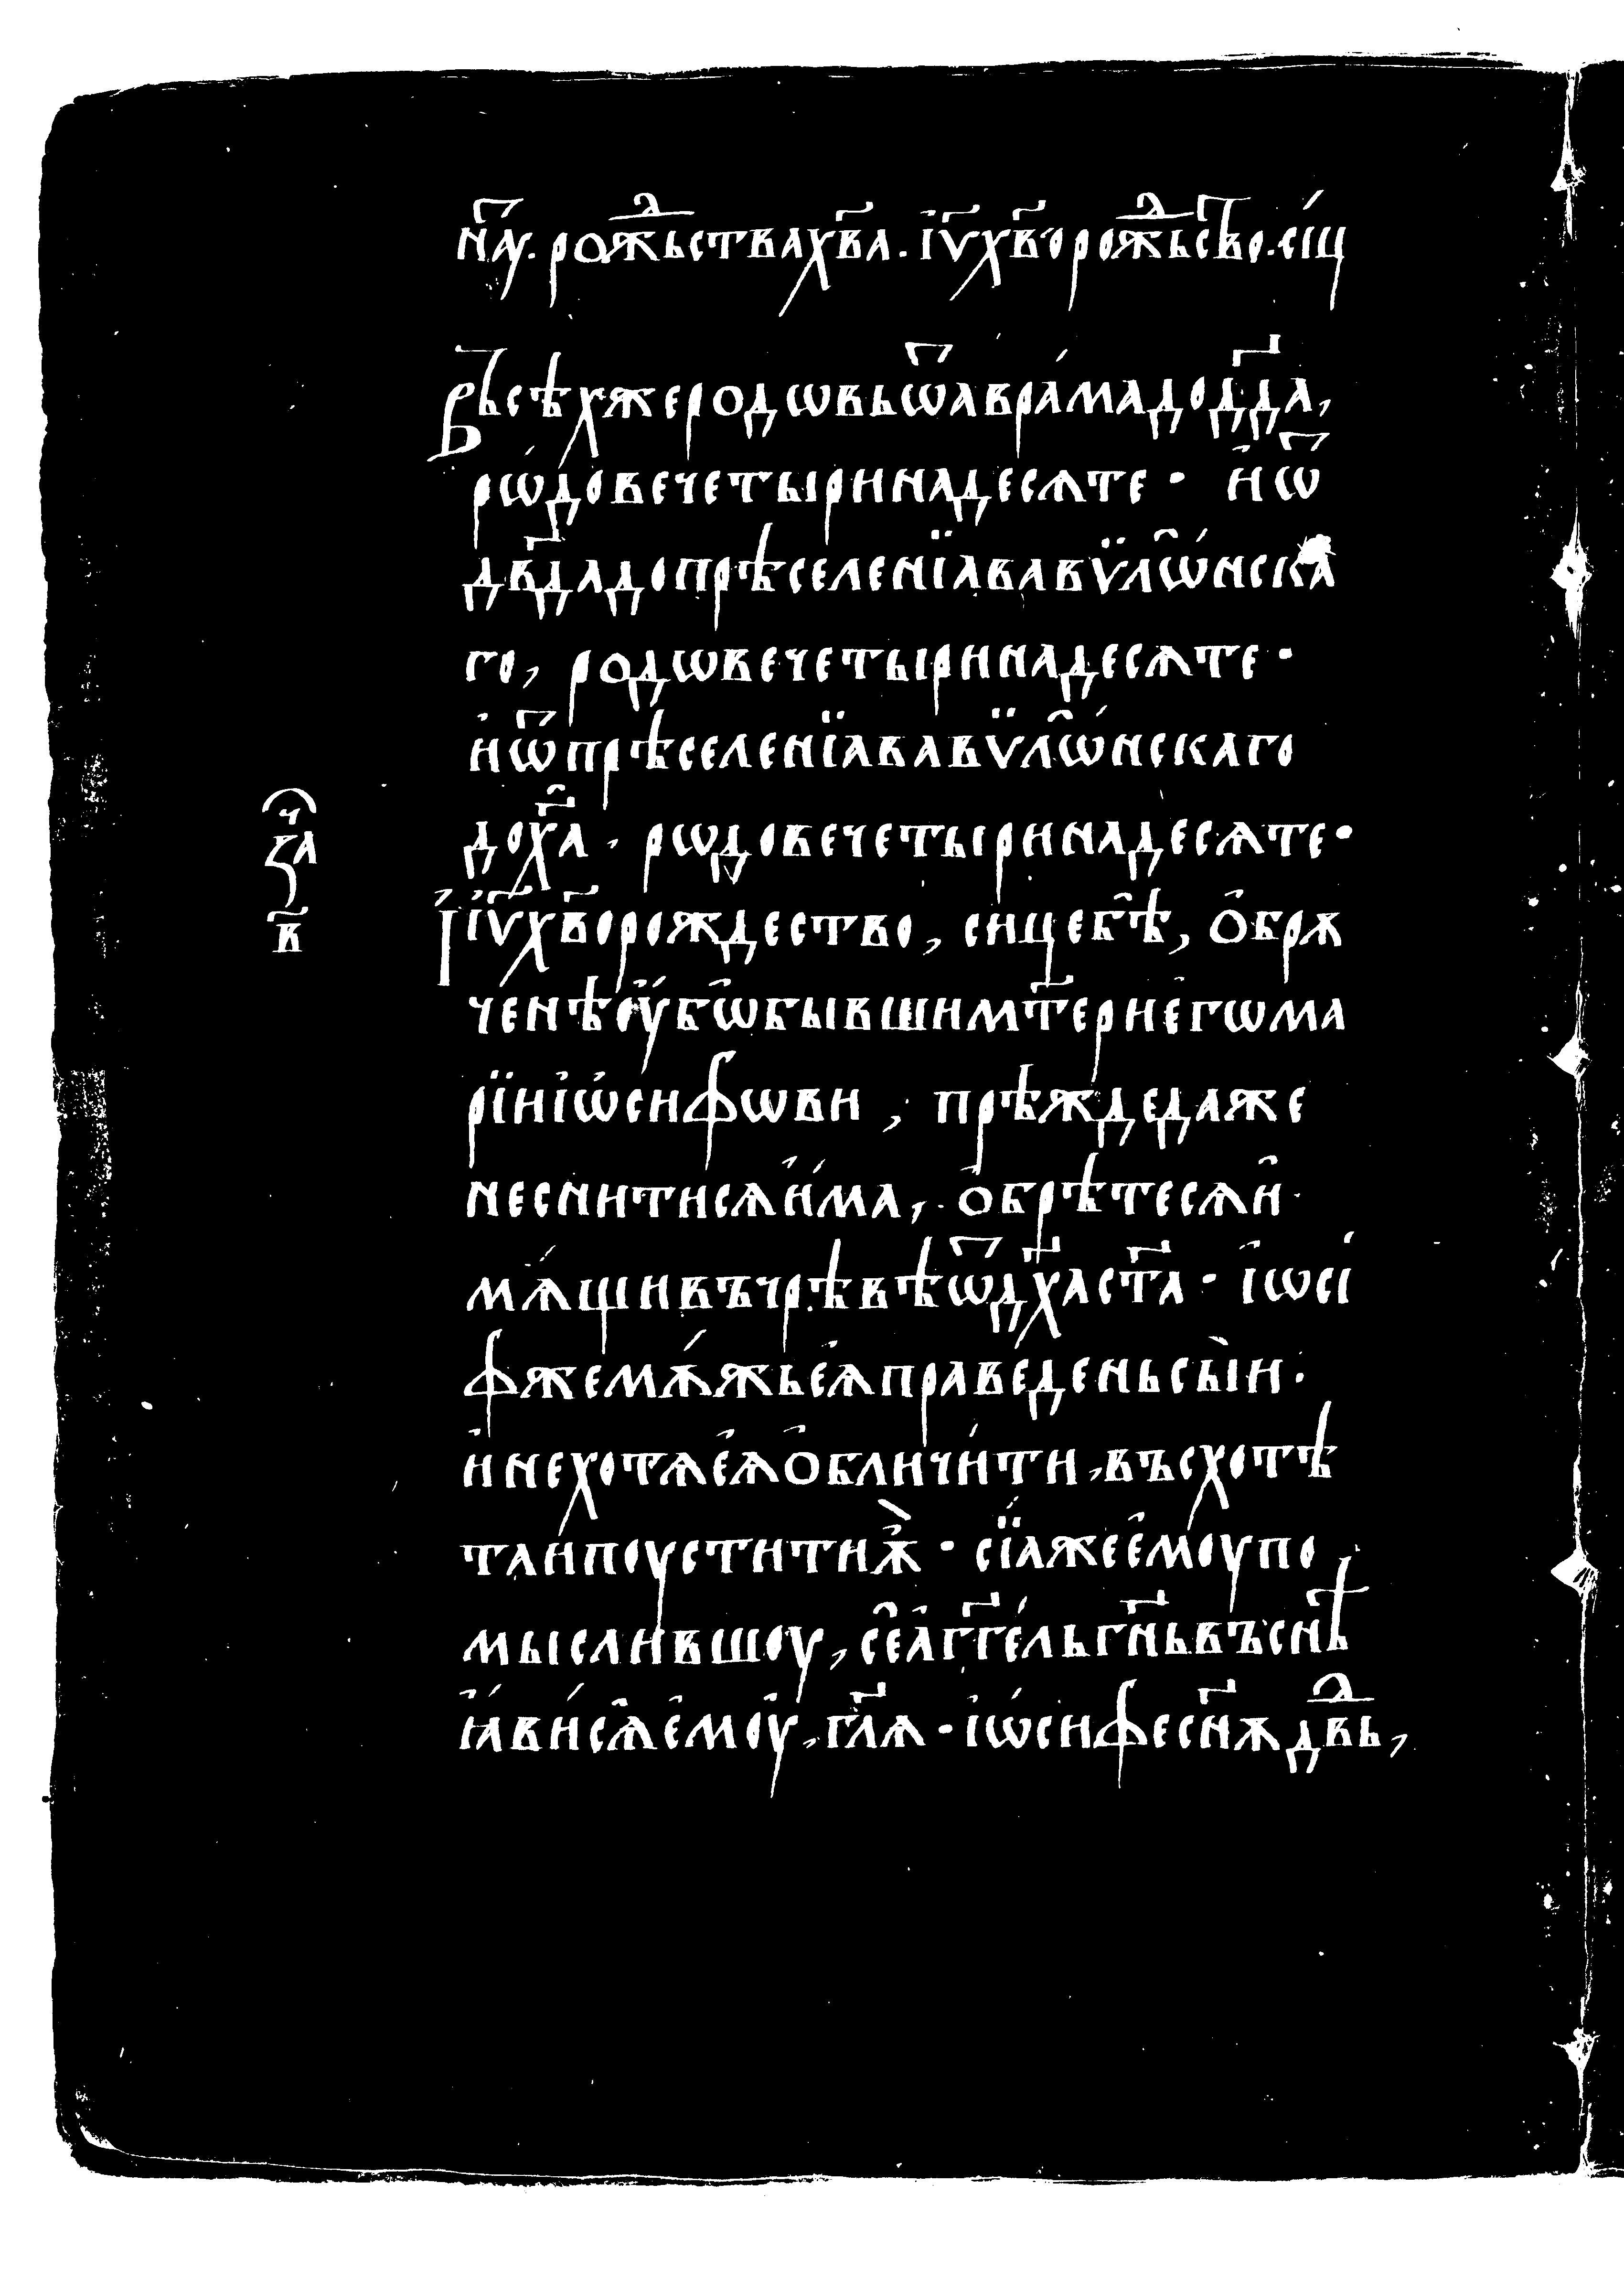 на҃у. рожⷣьствахв҃а. і҆ѵ҃хв҃о рожⷣьсв҃о. сі́ц
Вьсѣхжеродѡвьѿавра́мадодд҃а,
рѡ́довечетыринадесѧте · и҆ѿ
дв҃дадопрѣселенїававѵ̈лѡ́нска
го, родѡвечетыринадесѧте ·
и҆ѿпрѣселенїававѵ̈лѡ́нскаго
дох҃а · рѡдовечетыринадесѧте ·
ча
за҃
в҃
І҆і҆ѵ҃хв҃орождество, сицебѣ̑, ѻ҆брѫ
ченѣѐѵ҆бѡбывшимт҃ерие҆гѡма
рїиі҆ѡ҆сифѡви , прѣждедаже
неснитисѧи҆́ма, ѻ҆брѣтесѧи҆
мѫ́щивъчрѣвѣѿдх҃аст҃а · і҆ѡсі
фжемѫ́жьеѧ҆праве́деньсы̀и ·
и҆нехотѧе҆ѧѻ҆бличи́ти, въсхотѣ
таи҆поуститиѫ҆̀ · сїа́жее҆моупо
мысли́вшоу, се҆а҆гг҃е́льгн҃ьвъснѣ
ꙗ҆ви́сѧе҆моу҆, гл҃ѧ · і҆ѡ́сифесн҃ѫдв҃ь,